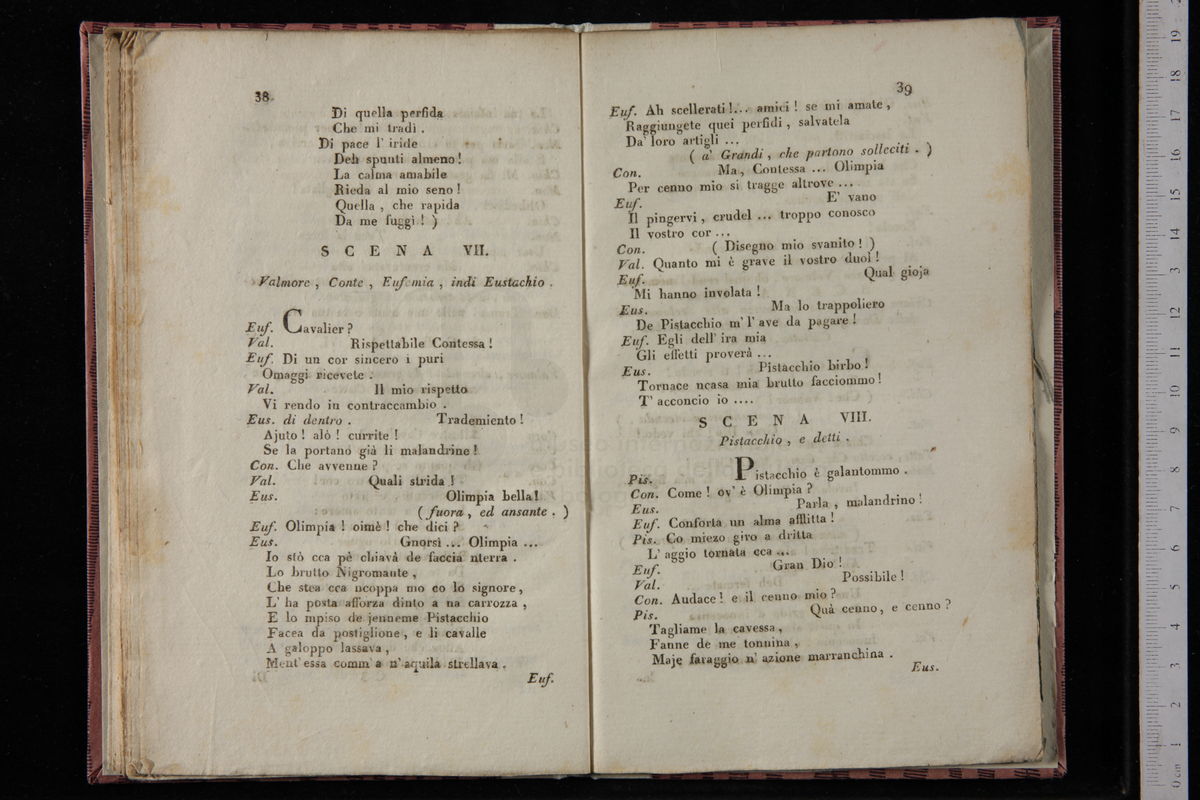 38
Di quella perfida
Che mi tradì .
Di pace l' iride
Deh spunti almeno !
La calma amabile
Rieda al mio seno !
Quella , che rapida
Da me fuggì ! )
SCENA VII.
Valmore , Conte , Eufemia , indi Eustachio .
Euf. Cavalier ?
Val. Rispettabile Contessa !
Euf. Di un cor sincero i puri
Omaggi ricevete .
Val. Il mio rispetto
Vi rendo in contraccambio .
Eus. di dentro . Trademiento !
Ajuto ! alò ! currite !
Se la portano già li malandrine !
Con. Che avvenne ?
Val. Quali strida !
Eus. Olimpia bella !
( fuora , ed ansante . )
Euf. Olimpia ! oimè ! che dici ?
Eus. Gnorsì ... Olimpia ...
Io stò cca pè chiavà de faccia nterra .
Lo brutto Nigromante ,
Che stea cca ncoppa mo co lo signore ,
L' ha posta afforza dinto a na carrozza ,
E lo mpiso de jenneme Pistacchio
Facea da postiglione , e li cavalle
A galoppo lassava ,
Ment' essa comm' a n' aquila strellava .
Euf.
39
Euf. Ah scellerati !... amici ! se mi amate ,
Raggiungete quei perfidi , salvatela
Da' loro artigli ...
( a' Grandi , che partono solleciti . )
Con. Ma , Contessa ... Olimpia
Per cenno mio si tragge altrove ...
Euf. E' vano
Il pingervi , crudel ... troppo conosco
Il vostro cor ...
Con. ( Disegno mio svanito ! )
Val. Quanto mi è grave il vostro duol !
Euf. Qual gioja
Mi hanno involata !
Eus. Ma lo trappoliero
De Pistacchio m' l' ave da pagare !
Euf. Egli dell' ira mia
Gli effetti proverà ...
Eus. Pistacchio birbo !
Tornace ncasa mia brutto facciommo !
T' acconcio io ....
SCENA VIII.
Pistacchio , e detti .
Pis. Pistacchio è galantommo .
Con. Come ! ov' è Olimpia ?
Eus. Parla , malandrino !
Euf. Conforta un alma afflitta !
Pis. Co miezo givo a dritta
L' aggio tornata cca ...
Euf. Gran Dio !
Val. Possibile !
Con. Audace ! e il cenno mio ?
Pis. Quà cenno , e cenno ?
Tagliame la cavessa ,
Fanne de me tonnina ,
Maje faraggio n' azione marranchina .
Eus.